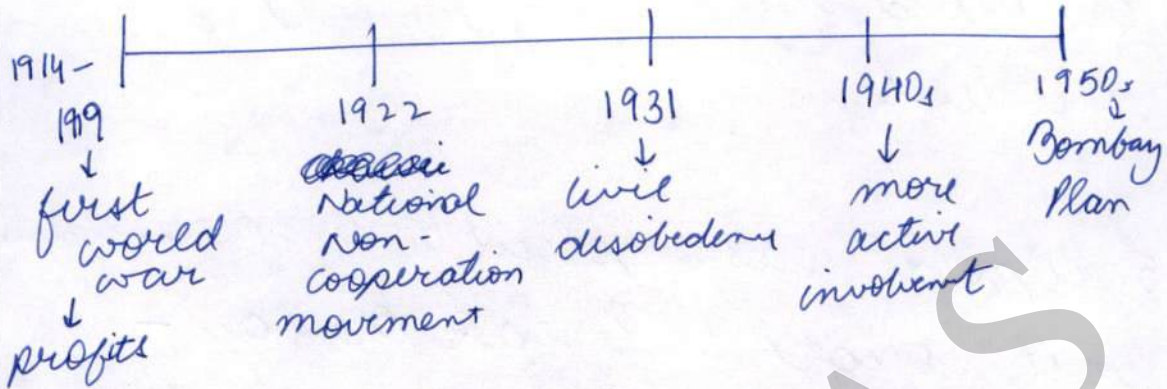 1914-
1919
↓
first
world
war
↓
profits
1922
National
non-
cooperation
movement
1931
↓
civil
disobediene
1940s
↓
more
active
involvent
1950s
↓
Bombay
Plan
S